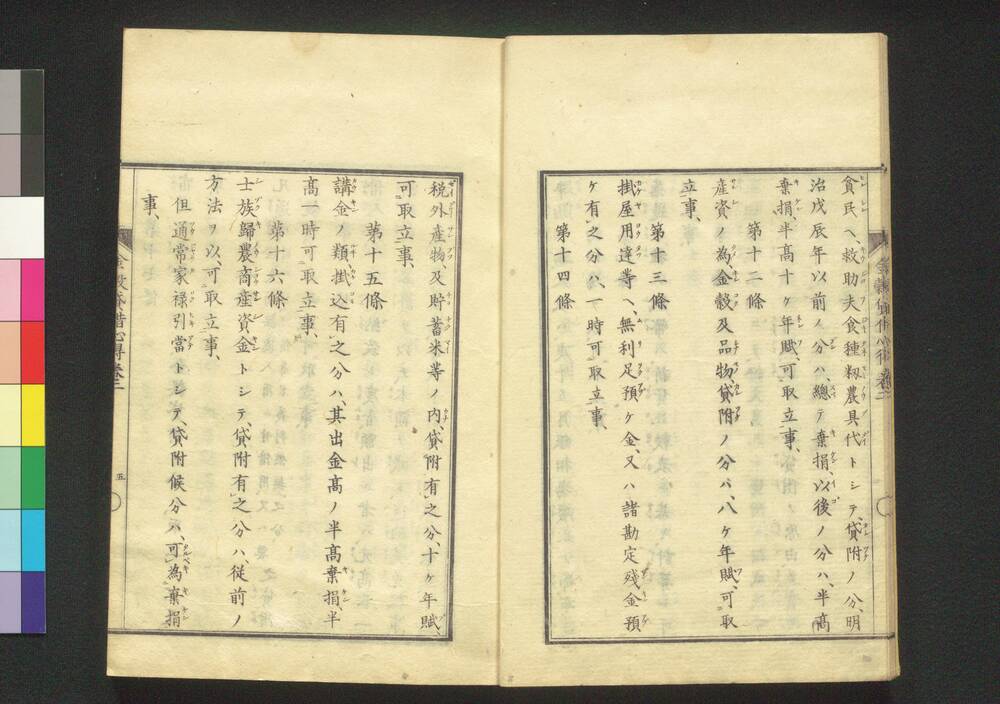 貧民ヘ救助夫食種籾農具代トシテ、貸附ノ分、明
治戊辰年以前ノ分ハ、總テ棄捐、以後ノ分ハ、半高
棄捐、半高十ヶ年賦、可取立事、
第十二條
産資ノ為金穀及品物貸附ノ分ハ、八ヶ年賦、可取
立事、
第十三條
掛屋用達等ヘ、無利足預ヶ金、又ハ諸勘定殘金預
ヶ有之分ハ、一時可取立事、
第十四條
税外產物及貯蓄米等ノ内、貸附有之分、十ヶ年賦、
可取立事、
第十五條
講金ノ類掛込有之分ハ、其出金高ノ半高棄捐、半
高一時可取立事、
第十六條
士族歸農商産資金トシテ、貸附有之分ハ、従前ノ
方法ヲ以、可取立事、
但通常家禄引當トシテ、貸附候分ハ、可為棄捐
事、
五